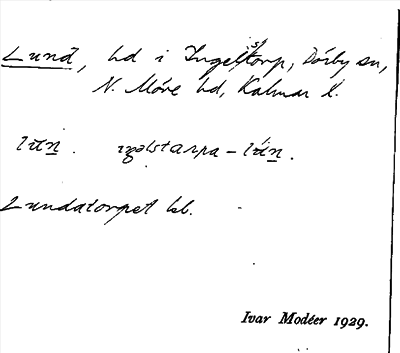 Lund, hd i Ingelstorp, Dörby sn,
N. Möre hd, Kalmar l.
lun. ıŋəlstarpa-lún.
Lundatorpet bl.
Ivar Modéer 1929.